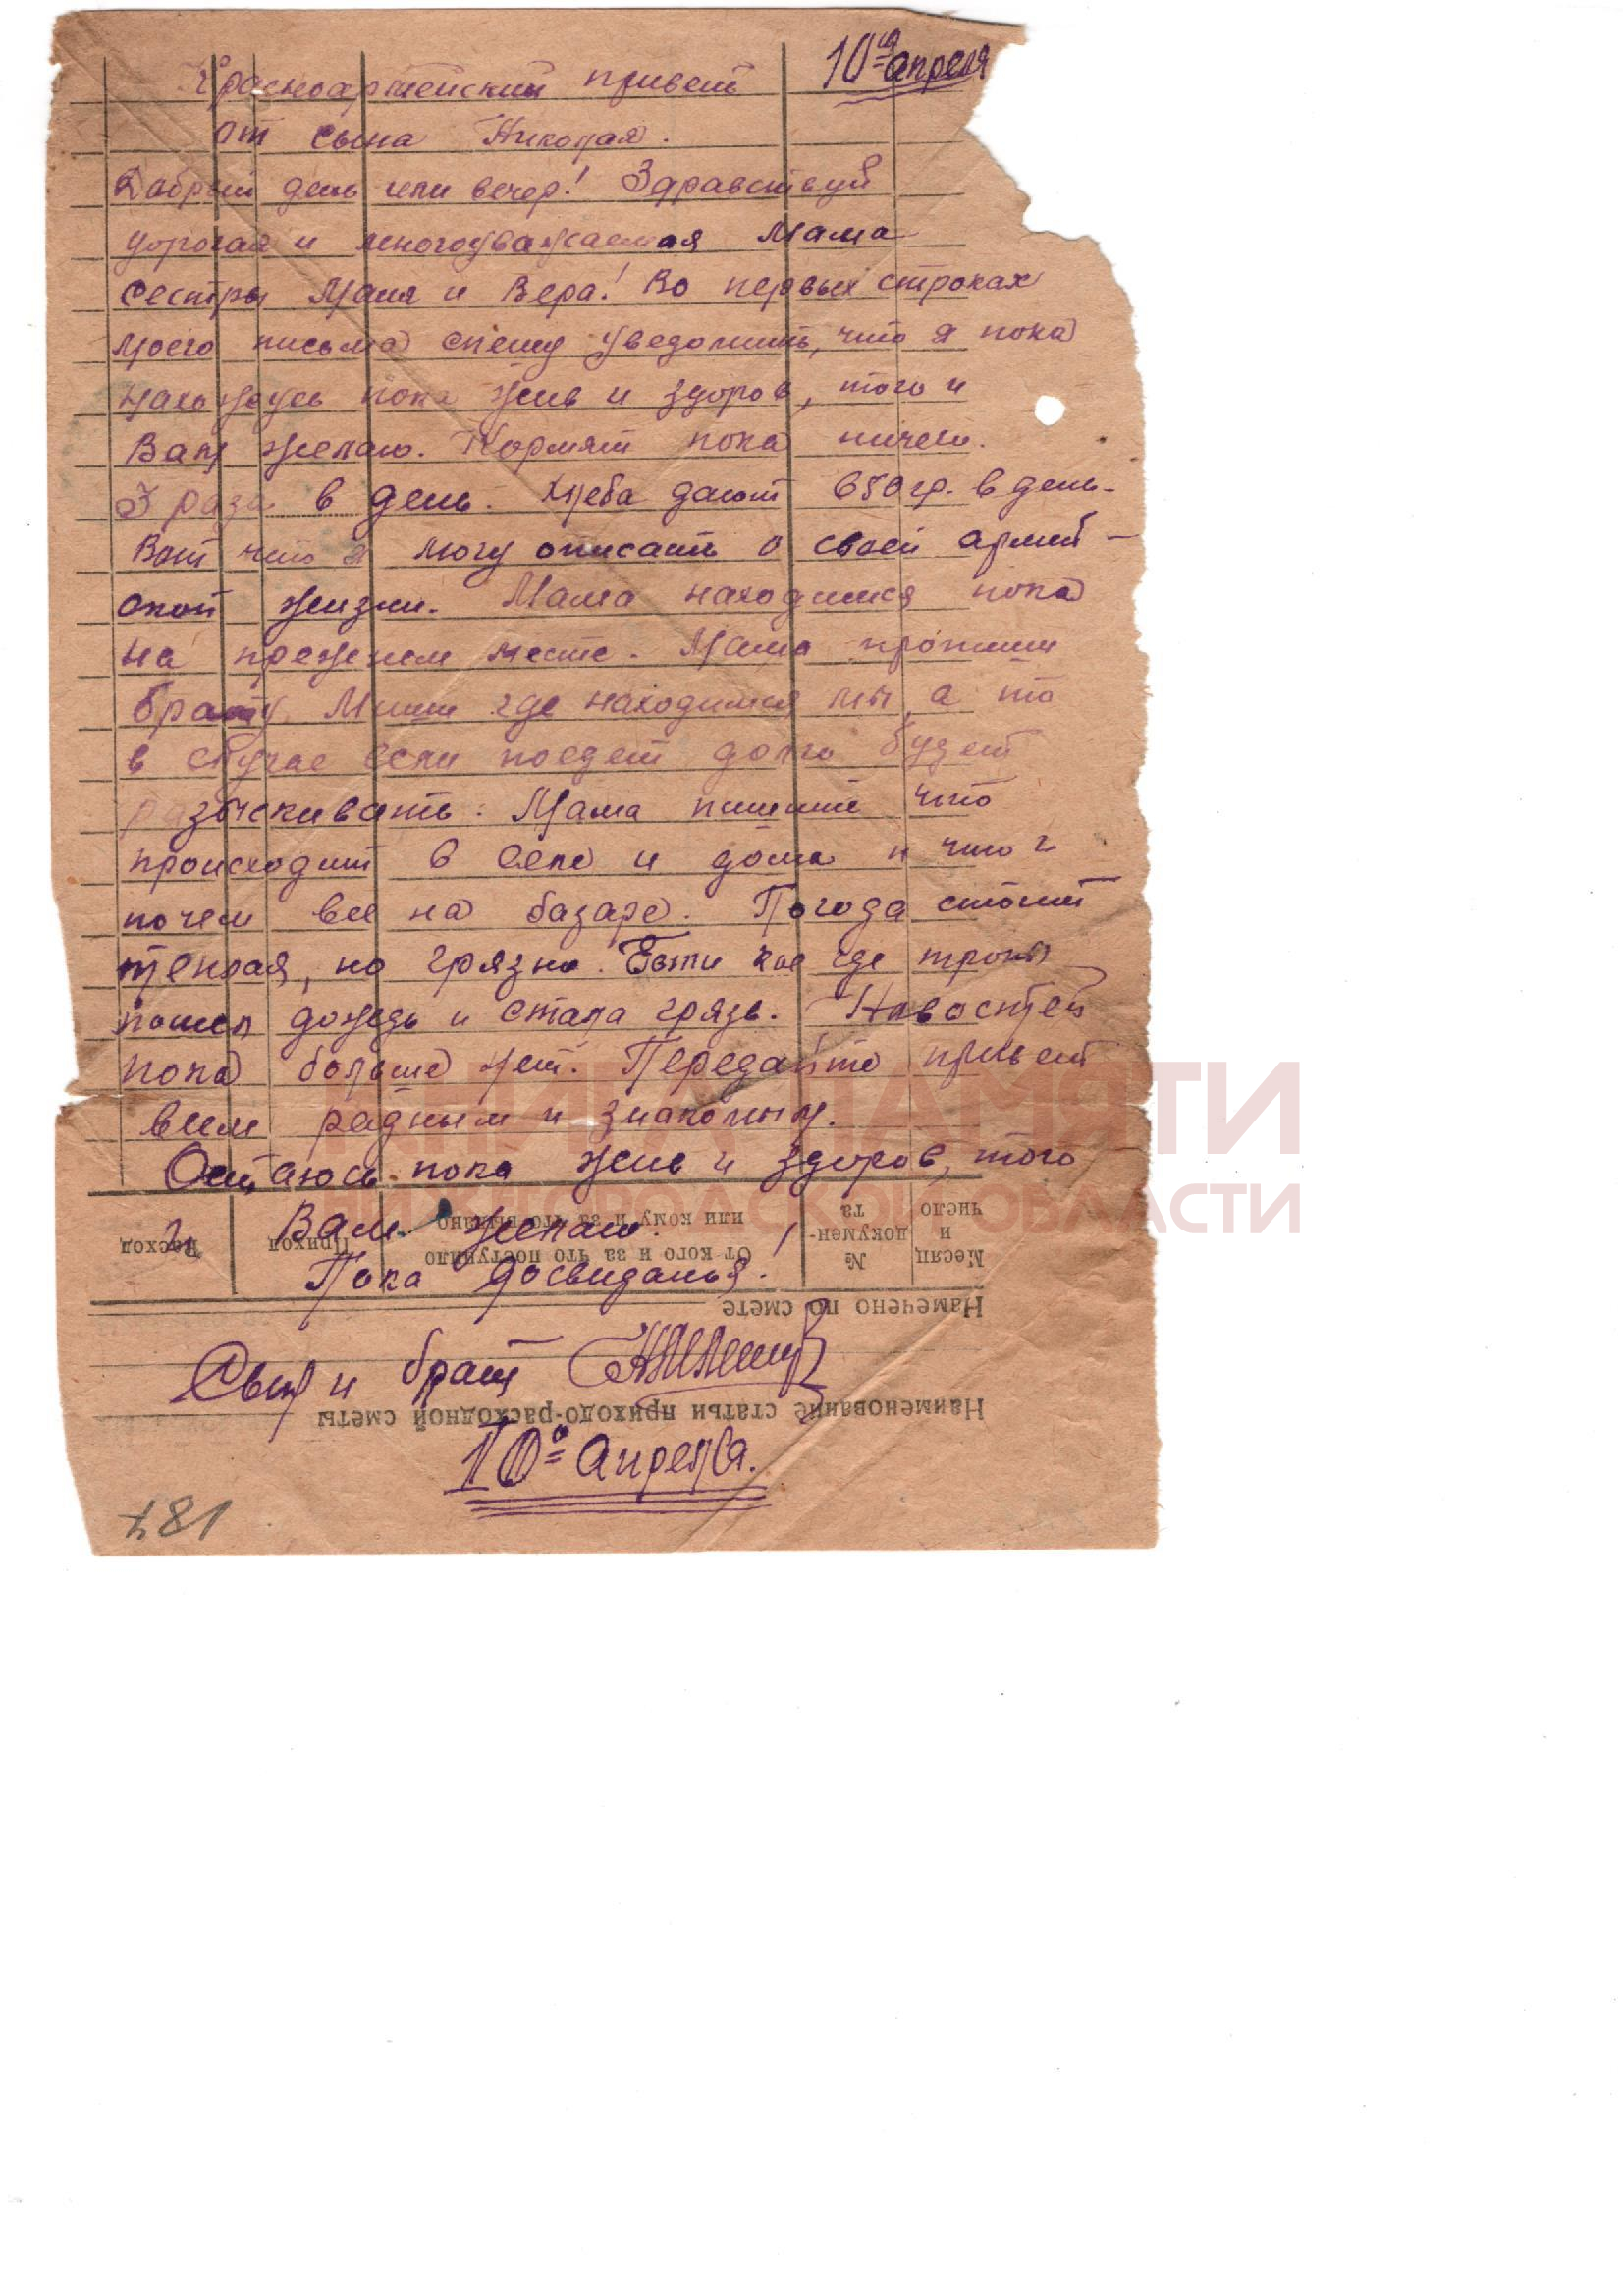 10го апреля
Красноармейский привет
от сына Николая.
Добрый день или вечер! Здравствуй
дорогая и многоуважаемая Мама
сестры Маня и Вера! Во первых строках
моего письма спешу уведомить, что я пока
нахожусь пока жив и здоров, того и
Вам желаю. Кормят пока ничего.
3 раза в день. Хлеба дают 650 гр. в день.
Вот что я могу описать о своей армей-
ской жизни. Мама находимся пока
на прежнем месте. Мама пропиши
брату Мише где находимся мы, а то
в случае если поедет долго будет
разыскивать. Мама пишите что
происходит в селе и дома и что и
почем все на базаре. Погода стоит
теплая, но грязно. кое где
пошел дождь и стала грязь. Новостей
пока больше нет. Передайте привет
всем радным и знакомым.
Остаюсь пока жив и здоров, того
и Вам желаю.
Пока досвиданья.
Сын и брат
10го Апреля.
181
Наименование статьи приходо-расходной сметы
Намечено по смете
Месяц и число
№ докумен-та
От кого и за что поступило
или кому и за что выдано
Приход
Расход
КНИГА ПАМЯТИ
НИЖЕГОРОДСКОЙ ОБЛАСТИ